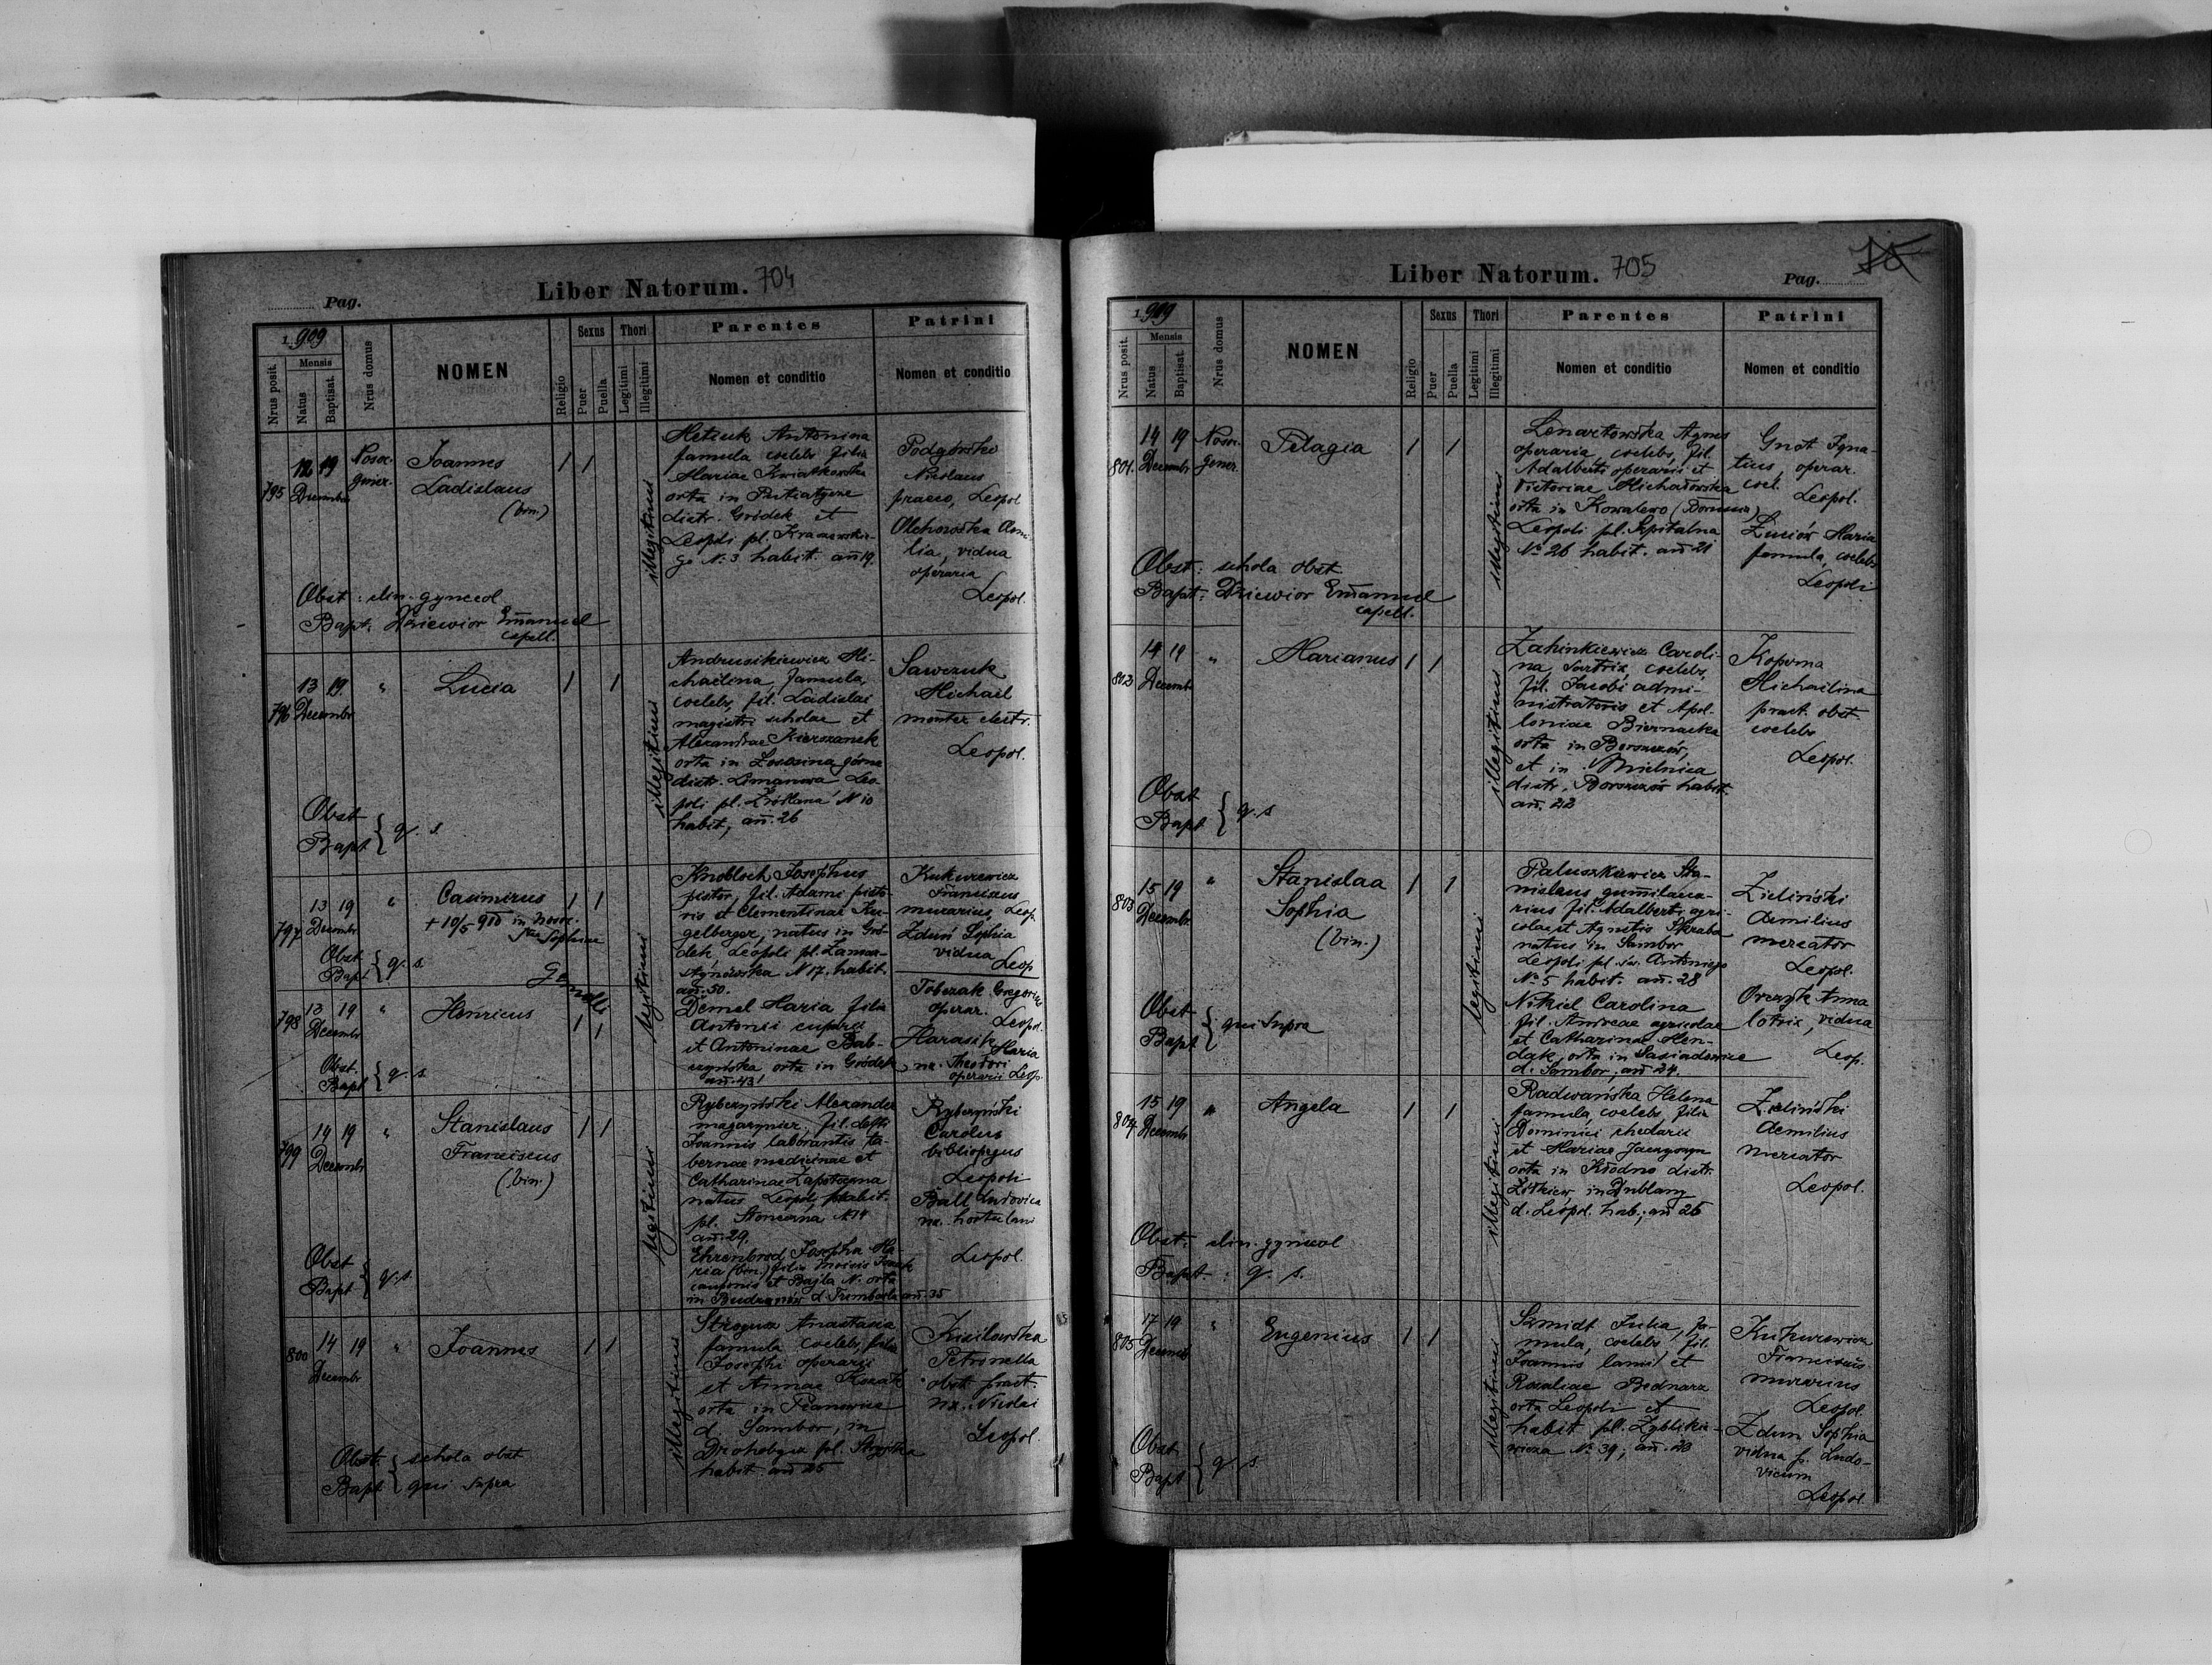 Pag.
Liber Natorum. 704
1909
Nrus posit.
Mensis
Natus
Baptisat.
Nrus domus
NOMEN
Religio
Sexus
Puer
Puella
Thori
Legitimi
Illegitimi
Parentes
Nomen et conditio
Patrini
Nomen et conditio
795
12 19
Decembr
Nosoc.
gener.
Joannes
Ladislaus
(bin.)
1 1
illegitimi
Hetsuk Antonina
famula coelebs filia
Mariae Kwiatkowska
orta in
distr. Gródek et
Leopoli pl. Kraszewskie-
go N. 3 habit. añ 19.
Podgórski
Nicolaus
praeco, Leopol
Olchowska Aemi
lia, vidua
operaria
Leopol.
Obst: clin. gynecol.
Bapt: Dziewior Emanuel
capell.
796
13 19.
Decembr
"
Lucia
1 1
illegitimi
Andrusikiewicz Mi-
chaelina, famula,
coelebs, fil. Ladislai
magistri scholae et
Alexandrae Kierszanek
orta in Łososina górna
distr. Limanowa Leo-
poli pl. Źródlana N 10
habit, añ. 26
Sawczuk
Michael
monter electr.
Leopol.
Obst
Bapt } q. s.
797
13 19
Decembr
"
Casimirus
+ 10/5 910 in nosoc.
Stae Sophiae
1 1
Obst
Bapt } q. s.
Gemelli
legitimi
Knobloch Josephus
pistor, fil. Adami pisto-
ris et Clementinae Ku-
gelberger, natus in Gró-
dek, Leopoli pl. Zamar-
stynówska N 17. habit.
añ. 50.
Kukurewicz
Franciscus
murarius, Leop.
Zduń Sophia
vidua
Leop
798
13 19
Decembr
"
Henricus
1 1
Demel Maria filia
Antonii
et Antoninae Bab-
czyńska orta in Gródek
añ. 43
Tobczak Gregorius
operar.
Leopol.
Harasik Maria
ux. Theodori
operarii Leop.
Obst.
Bapt } q. s.
799
14 19
Decembr
"
Stanislaus
Franciscus
(bin.)
1 1
legitimi
Ryberzyński Alexander
magazynier, fil. defti
Joannis laborantis ta-
bernae medicinae et
Catharinae Zapotoczna
natus Leopoli habit.
pl. Słoneczna N 14
añ. 29.
Ehrenbrod Josepha Ma-
ria (bin.) filia Moisis Isaak
cauponis et Bajla N. orta
in Budzanów d. Trembowla añ. 35
Ryberzyński
Carolus
bibliopegus
Leopoli
Ball Ludovica
ux. hortulani
Leopol.
Obst
Bapt } q. s.
800
14 19
Decembr
"
Joannes
1 1
illegitimi
Anastasia
famula coelebs, filia
Josephi operarii
et Annae Kozak
orta in Pianowice
d Sambor, in
Drohobycz pl. Stryjska
habit añ 25
Kisilowska
Petronella
obst. pract.
ux. Nicolai
Leopol.
Obst } schola obst
Bapt } qui supra
Liber Natorum. 705
Pag.
1909
Nrus posit.
Mensis
Natus
Baptisat.
Nrus domus
NOMEN
Religio
Sexus
Puer
Puella
Thori
Legitimi
Illegitimi
Parentes
Nomen et conditio
Patrini
Nomen et conditio
801.
14 19
Decembr
Nosoc.
gener.
Pelagia
1 1
illegitimi
Lenartowska Agnes
operaria, coelebs, fil.
Adalberti operarii et
Victoriae Michałowska
orta in Kowalewo (Borussia)
Leopoli pl. Szpitalna
No 26 habit. añ 21
Gnot Igna-
tius, operar.
coel.
Leopol.
Żuciór Maria
famula, coelebs
Leopoli
Obst: schola obst
Bapt: Dziewior Emanuel
capell.
802
14 19
Decembr
"
Marianus
1 1
illegitimi
Zahinkiewicz Caroli-
na, sartrix, coelebs,
fil. Jacobi admi-
nistratoris et Apol-
loniae Biernacka
orta in Borszczów,
et in Mielnica
distr. Borszczów habit.
añ. 22
Koporna
Michaelina
pract. obst.
coelebs
Leopol.
Obst
Bapt } q. s
803
15 19
Decembr
"
Stanislaa
Sophia
(bin.)
1 1
legitimi
Paluszkiewicz Sta-
nislaus gummilaua-
rius fil. Adalberti agri-
colae et Agnetis Skraba
natus in Sambor
Leopoli pl. św. Antoniego
No 5 habit. añ. 28
Nikiel Carolina
fil. Andreae agricolae
et Catharinae Hen-
dak, orta in Sasiadowice
d. Sambor, añ 24.
Zieliński
Aemilius
mercator
Leopol.
Orczyk Anna
lotrix, vidua
Leop.
Obst
Bapt } qui supra
804
15 19
Decembr
"
Angela
1 1
illegitimi
Radwańska Helena
famula, coelebs, filia
Dominici rhedarii
et Mariae
orta in Kłodno distr.
Żółkiew, in Dublany
d. Leopol. hab.; añ 26
Zieliński
Aemilius
mercator
Leopol.
Obst: clin. gynecol
Bapt: q. s.
805
17 19
Decembr
"
Eugenius
1 1
illegitimi
Szmidt Julia, fa-
mula, coelebs, fil.
Joannis lanii et
Rosaliae Bednarz
orta Leopoli et
habit pl. Zyblikie-
wicza No 39; añ. 23
Kukurewicz
Franciscus
murarius
Leopol.
Zdun Sophia
vidua p. Ludo-
vicum
Leopol.
Obst
Bapt } q. s.